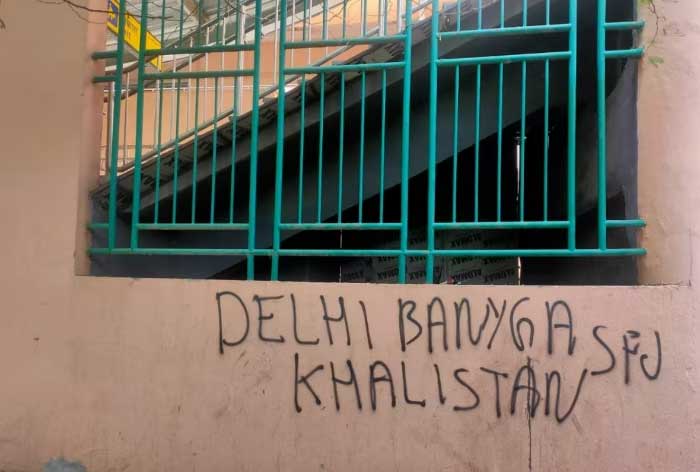 DELHI BANYGA SFJ
KHALISTAN